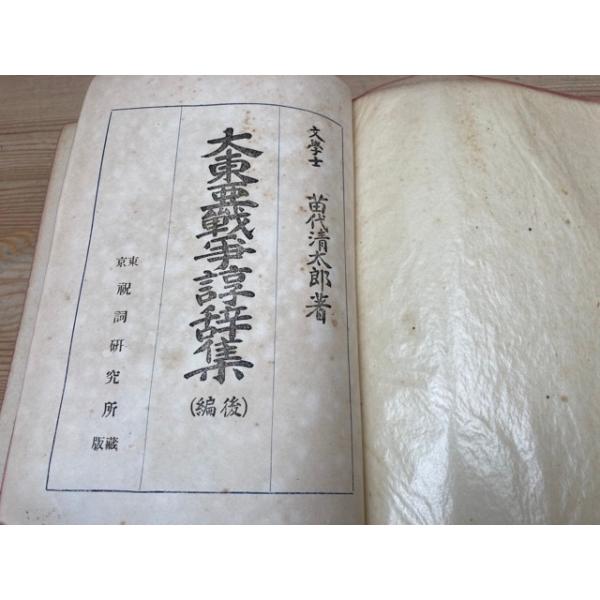 文學士 苗代清太郎著
大東亜戰爭諄辞集
(後編)
東京 祝詞研究所藏版